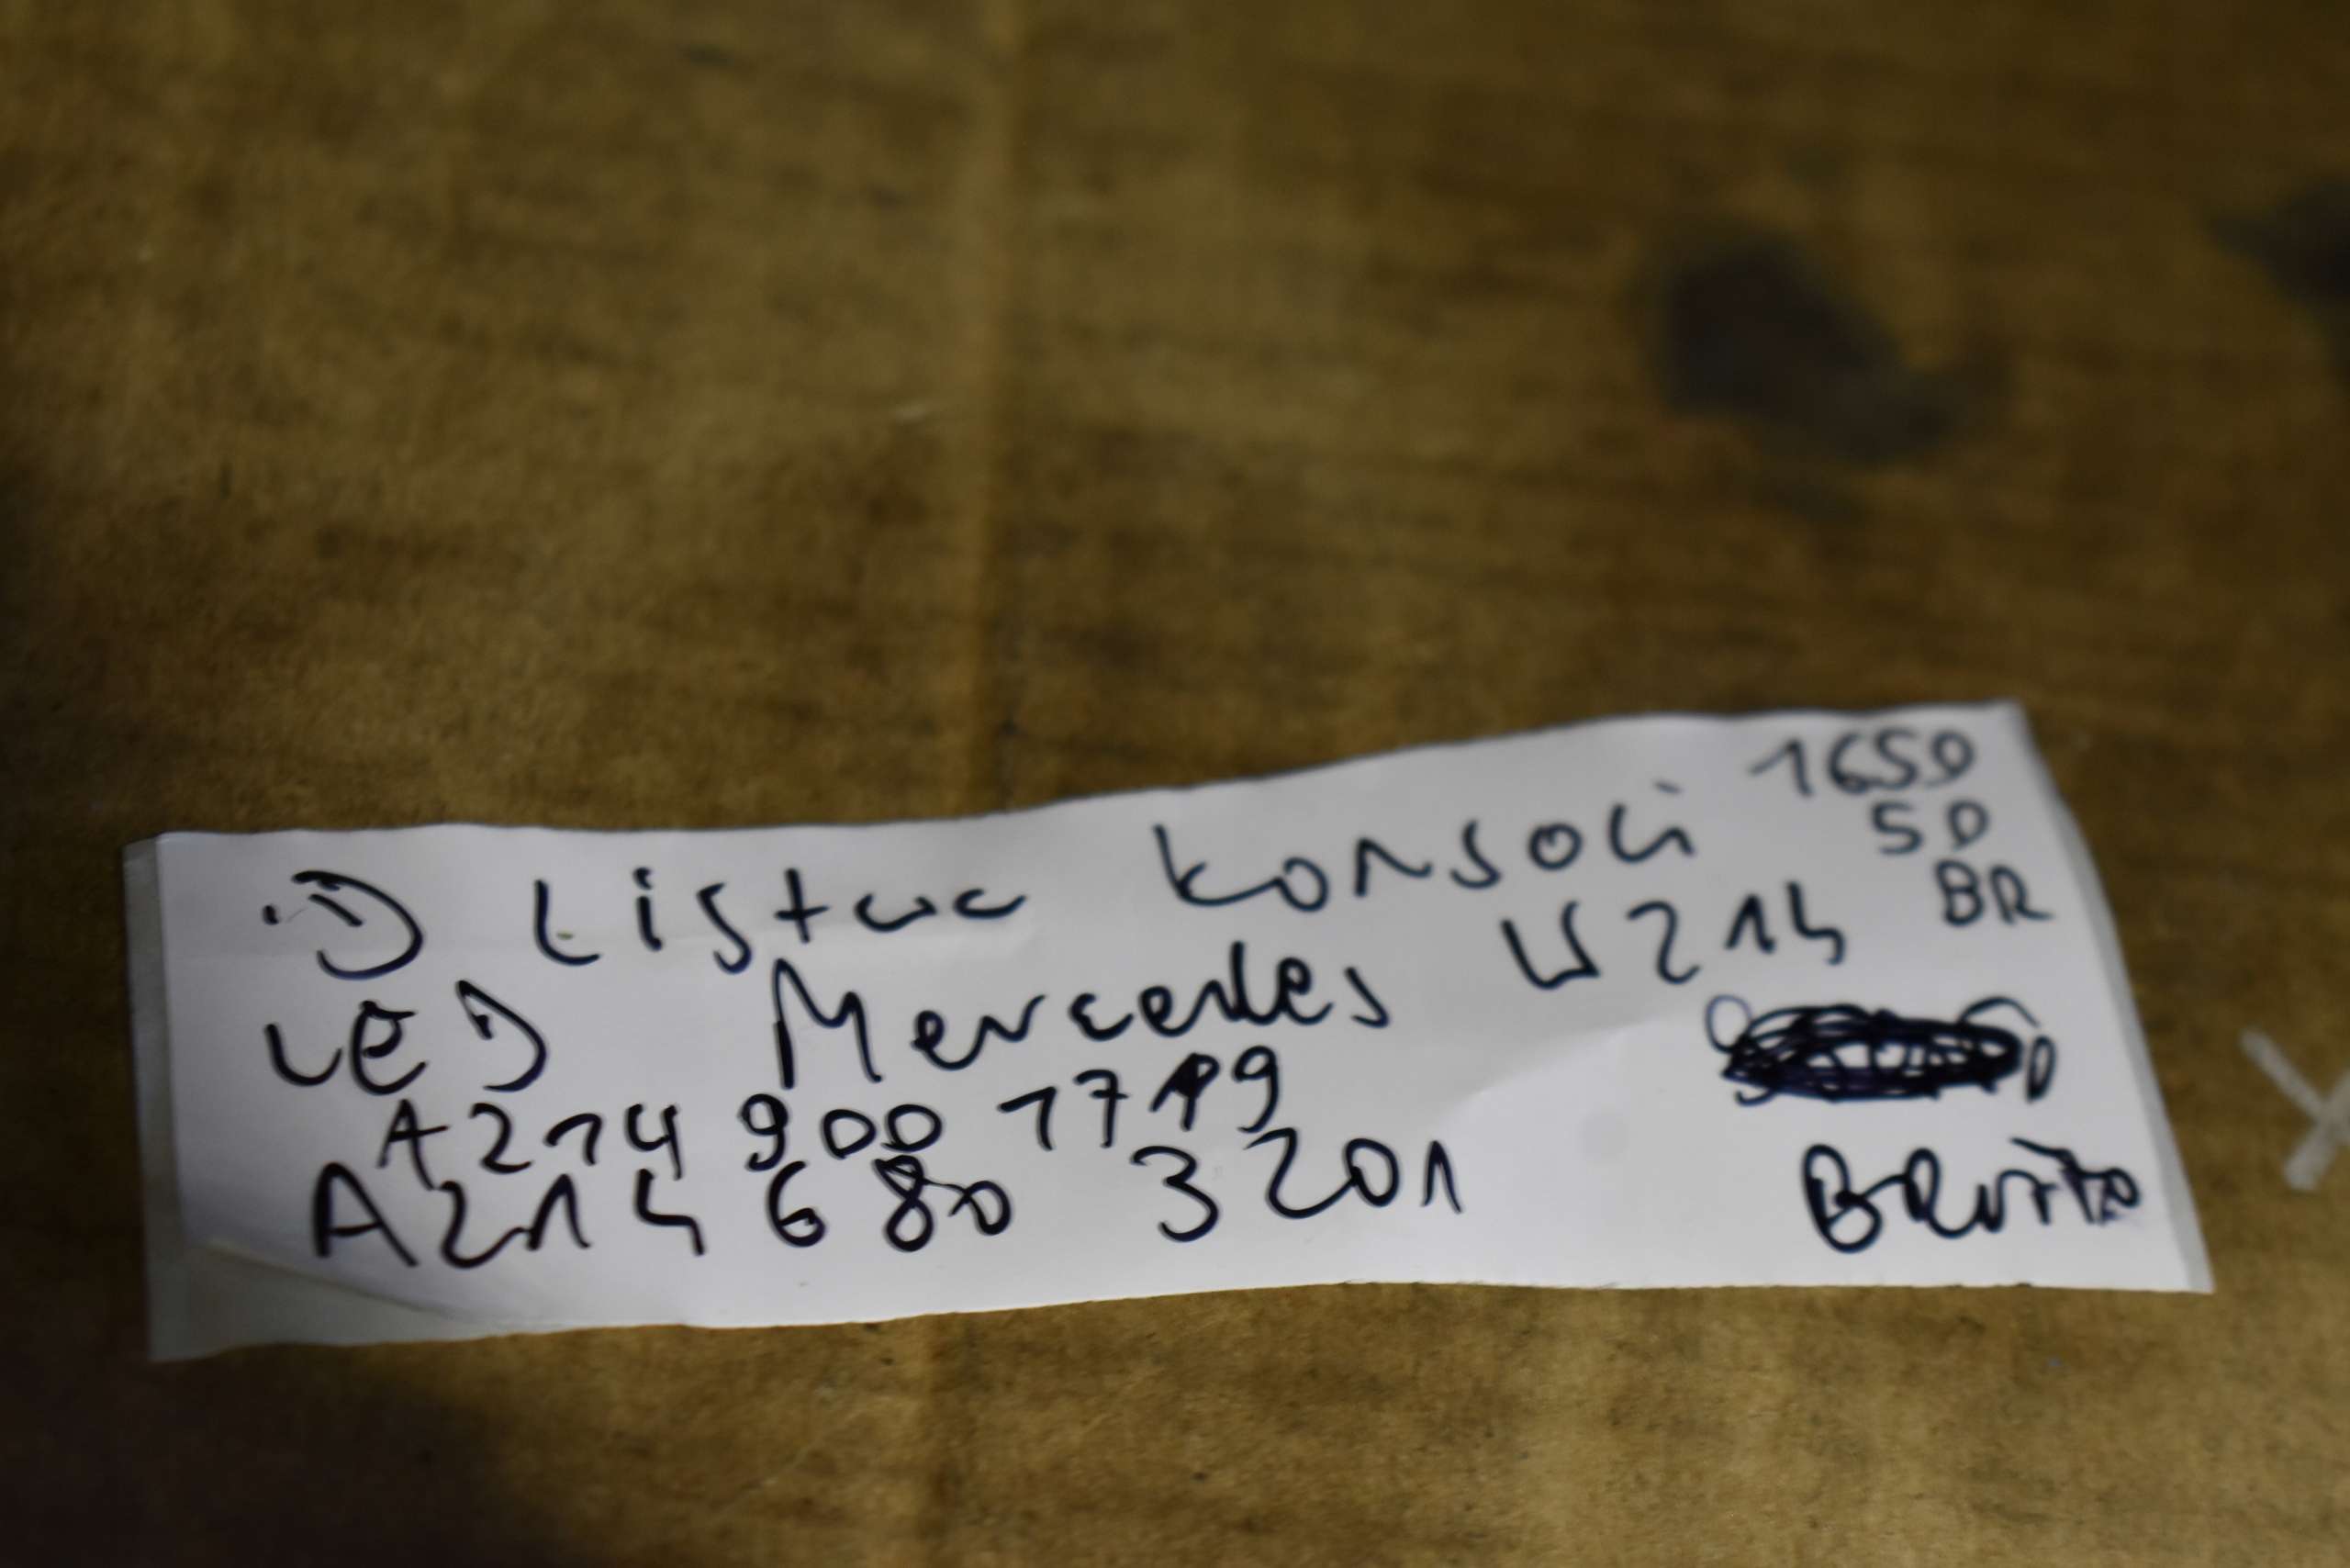 :D Listwa konsoli 1650
50
LED Mercedes W214 BR
A214 900 1719
A214 680 3201
BRUTTO